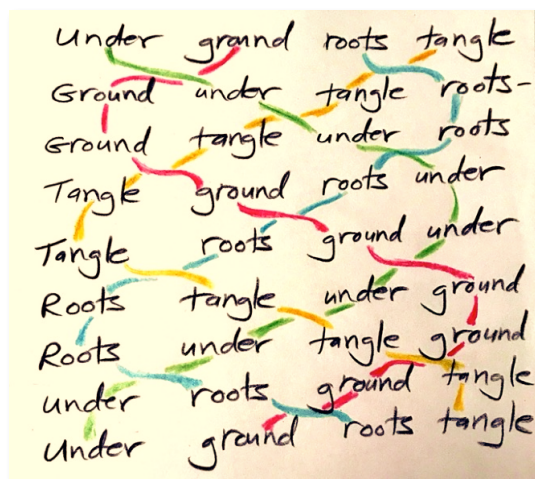 Under ground roots tangle
Ground under tangle roots-
Ground tangle under roots
Tangle ground roots under
Tangle roots ground under
Roots tangle under ground
Roots under tangle ground
under roots ground tangle
Under ground roots tangle